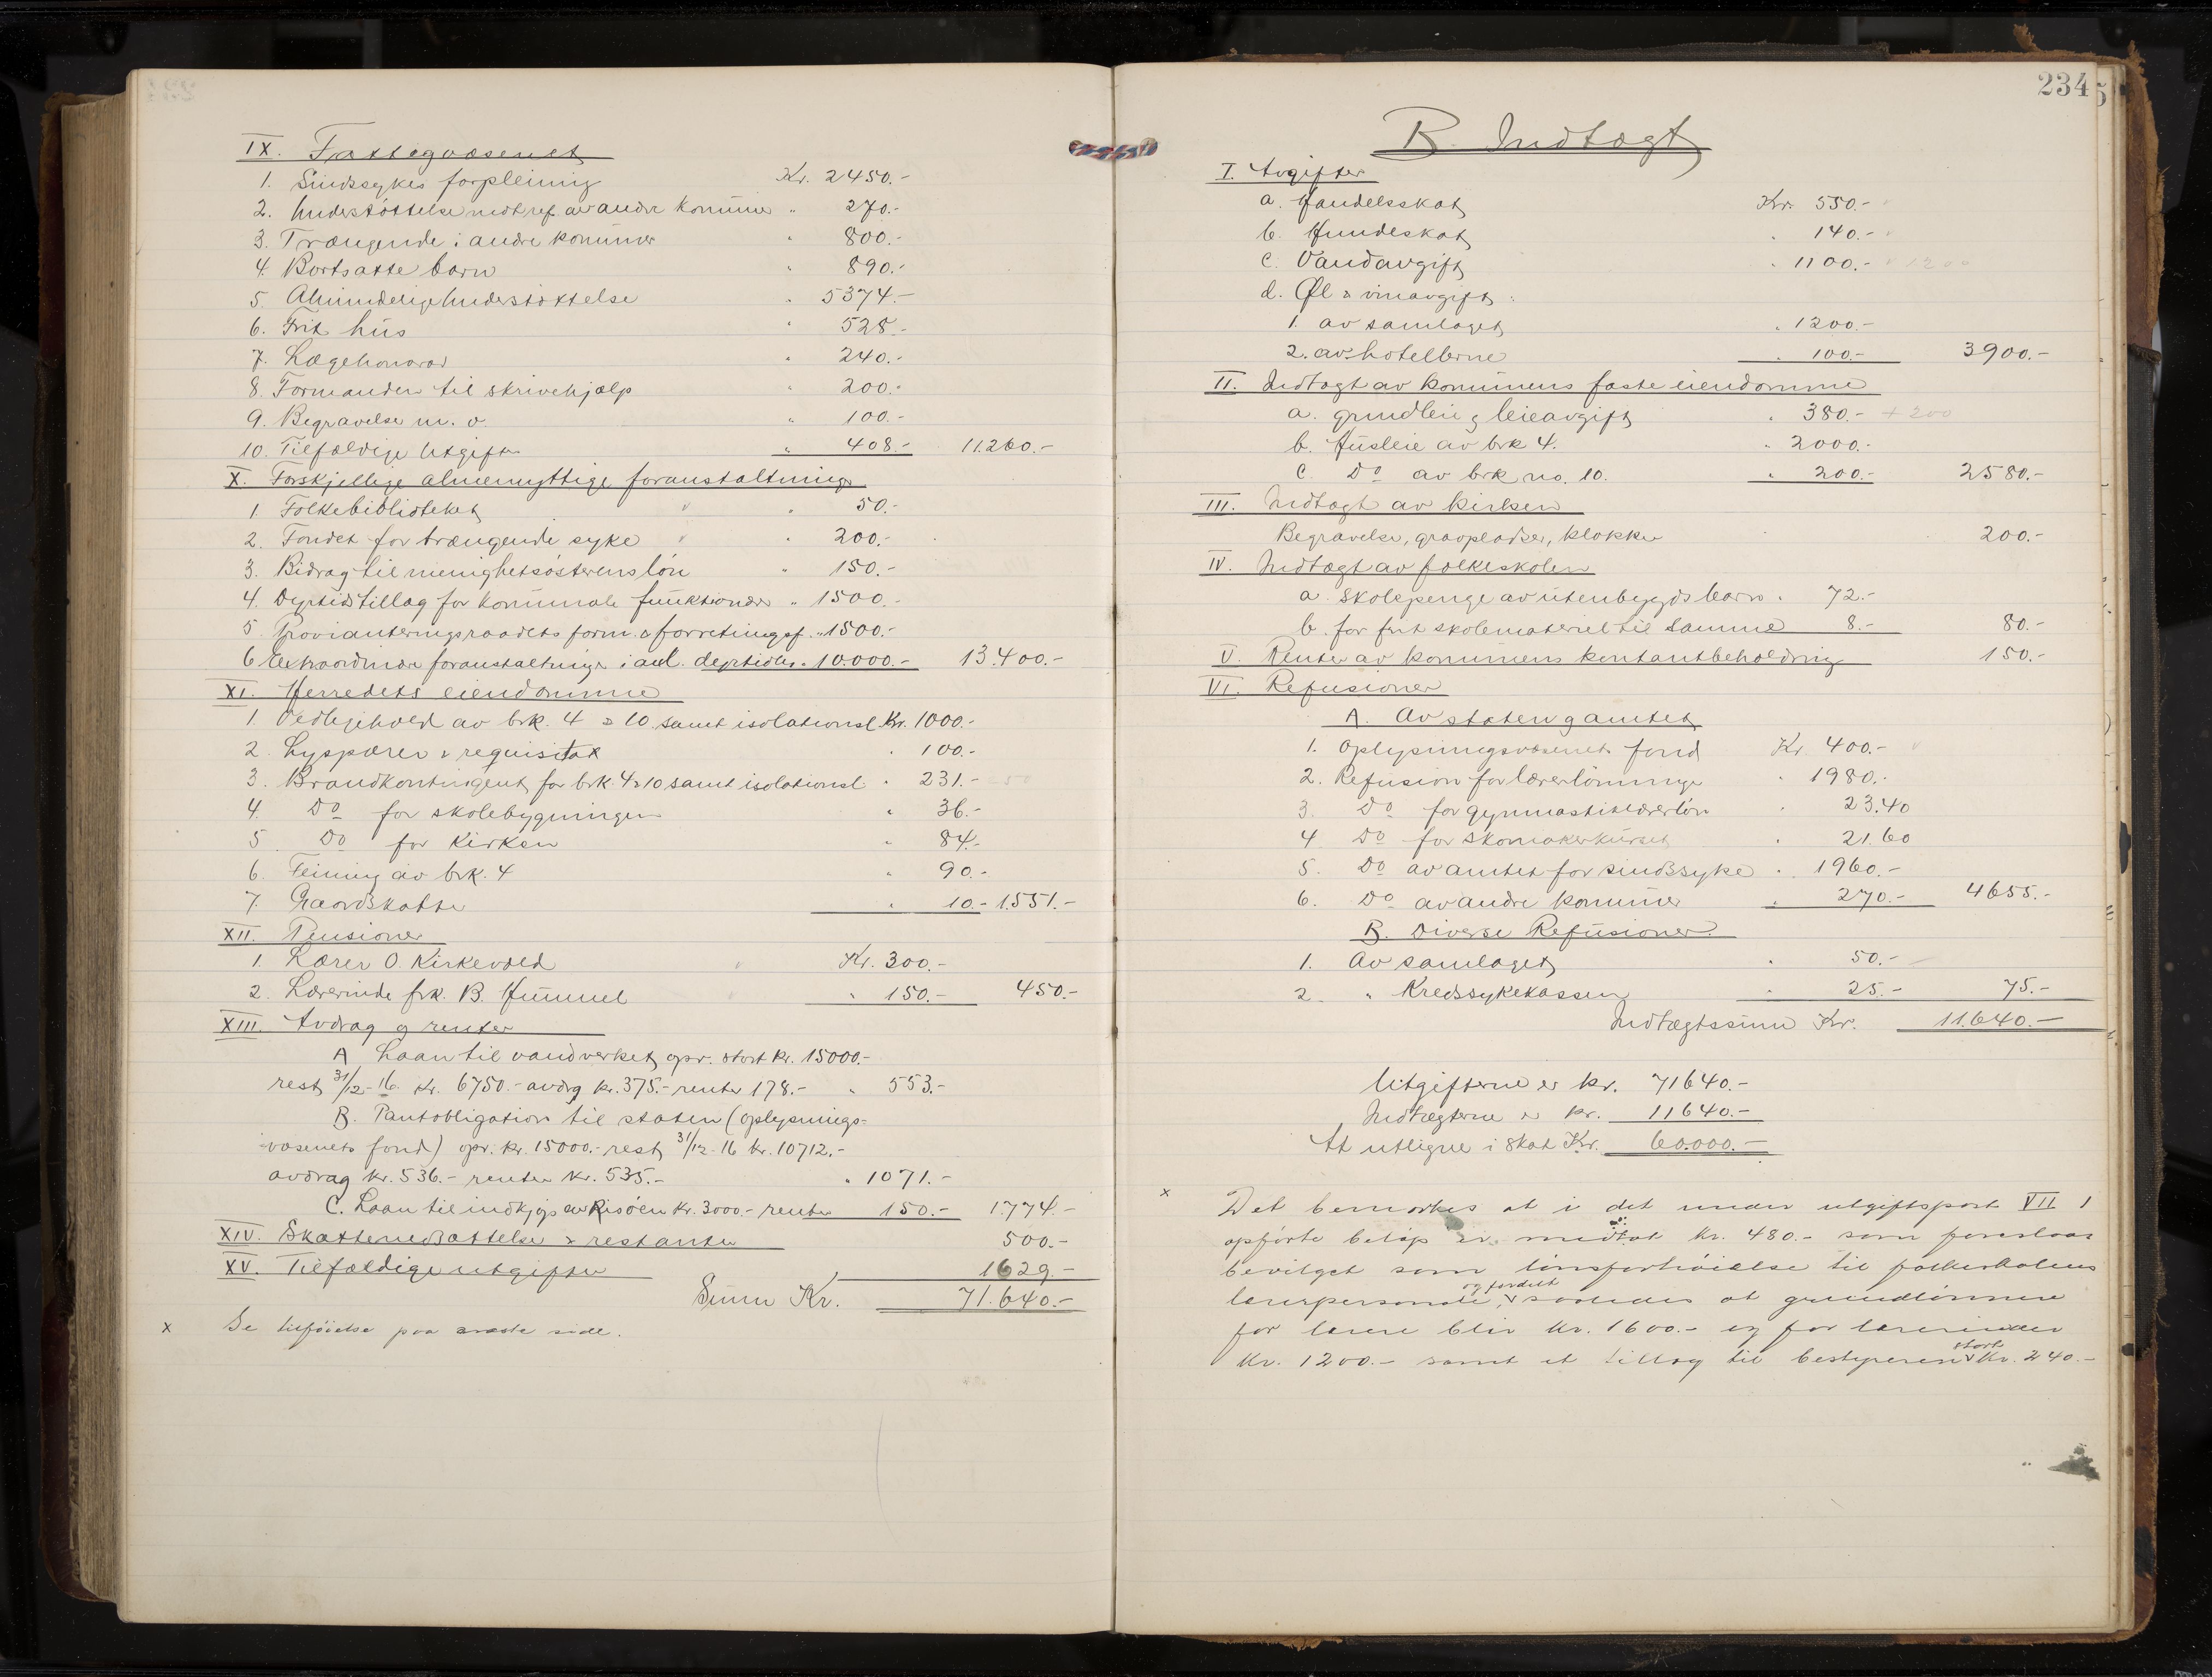 IX. Fattigvæsenet
1. Sindssykes forpleining Kr. 2450.-
2. Understöttelse mot ref. av andre kommuner " 270.-
3. Trængende i andre kommuner " 800.-
4. Bortsatte barn " 890.-
5. Almindelige Understöttelse " 5374.-
6. Frit hus " 528.-
7. Lægehonorar " 240.-
8. Formanden til skrivehjælp " 200.-
9. Begravelse m. v. " 100.-
10. Tilfældige Utgifter " 408.- 11.260.-
X. Forskjellige almennyttige foranstaltninger
1. Folkebiblioteket " 50.-
2. Fondet for trængende syke " 200.-
3. Bidrag til menighetsösterens lön " 150.-
4. Dyrtidstillæg for kommunale funktionærer " 1500.-
5. Provianteringsraadets form. & forretningsf. " 1500.-
6 Extraordinære foranstaltninger i anl. dyrtiden " 10.000.- 13.400.-
XI. Herredets eiendomme
1. Vedlikehold av brk. 4 & 10 samt isolationsl. Kr. 1000.-
2. Lyspærer & requisita " 100.-
3. Brandkontingent for brk. 4 & 10 samt isolationsl. " 231.- 50
4. Do for skolebygningen " 36.-
5. Do for Kirken " 84.-
6. Feining av brk. 4 " 90.-
7. Gaardskatter " 10.- 1.551.-
XII. Pensioner
1. Lærer O. Kirkevold Kr. 300.-
2. Lærerinde frk. B. Hummel " 150.- 450.-
XIII. Avdrag og renter
A Laan til vandverket, opr. stort kr. 15000.-
rest 31/12-16. kr. 6750.- avdrg kr. 375.- renter 178.- " 553.-
B. Pantobligation til staten (oplysnings-
væsenets fond) opr. kr. 15000.- rest 31/12-16 kr. 10712.-
avdrag kr. 536.- renter kr. 535.- " 1071.-
C. Laan til indkjøp av Risöen kr. 3000.- renter 150.- 1.774.-
XIV. Skattenedsættelse & restanser 500.-
XV. Tilfældige utgifter 1629.-
Summ Kr. 71.640.-
x Se tilföielse paa næste side.
234
5
B. Indtægt
I. Avgifter
a. Handelsskat Kr. 550.-
b. Hundeskat " 140.-
c. Vandavgift " 1100.- 1200
d. Øl & vinavgift:
1. av samlaget " 1200.-
2. av hotellerne " 100.- 3900.-
II. Indtægt av kommunens faste eiendomme
a. grundleie & leieavgift " 380.- + 200
b. Husleie av brk 4. " 2000.-
c. Do av brk no. 10. " 200.- 2580.-
III. Indtægt av kirken
Begravelse, gravpladser, klokker 200.-
IV. Indtægt av folkeskolen
a. Skolepenge av utenbygds barn " 72.-
b. for frit skolemateriel til samme 8.- 80.-
V. Renter av kommunens kontantbeholdning 150.-
VI. Refusioner
A. Av staten og amtet
1. Oplysningsvæsenets fond Kr. 400.-
2. Refusion for lærerlönninger " 1980.-
3. Do for gymnastiklærerlön " 23.40
4. Do for skomakerkurset " 21.60
5. Do av amtet for sindssyke " 1960.-
6. Do av andre kommuner " 270.- 4655.-
B. Diverse Refusioner
1. Av samlaget " 50.-
2. " Kredssykekassen " 25.- 75.-
Indtægtssum Kr. 11.640.-
Utgifterne er kr. 71640.-
Indtægterne er kr. 11640.-
At utligne i skat Kr. 60.000.-
x Det bemærkes at i det under utgiftspost VII 1
opförte belöp er medtat kr. 480.- som foreslaaes
bevilget som lönsforhöielse til folkeskolens
lærerpersonale, og fordelt saaledes at grundlönnen
for lærere blir kr. 1600.- og for lærerinder
kr. 1200.- samt et tillæg til bestyreren stort kr. 240.-